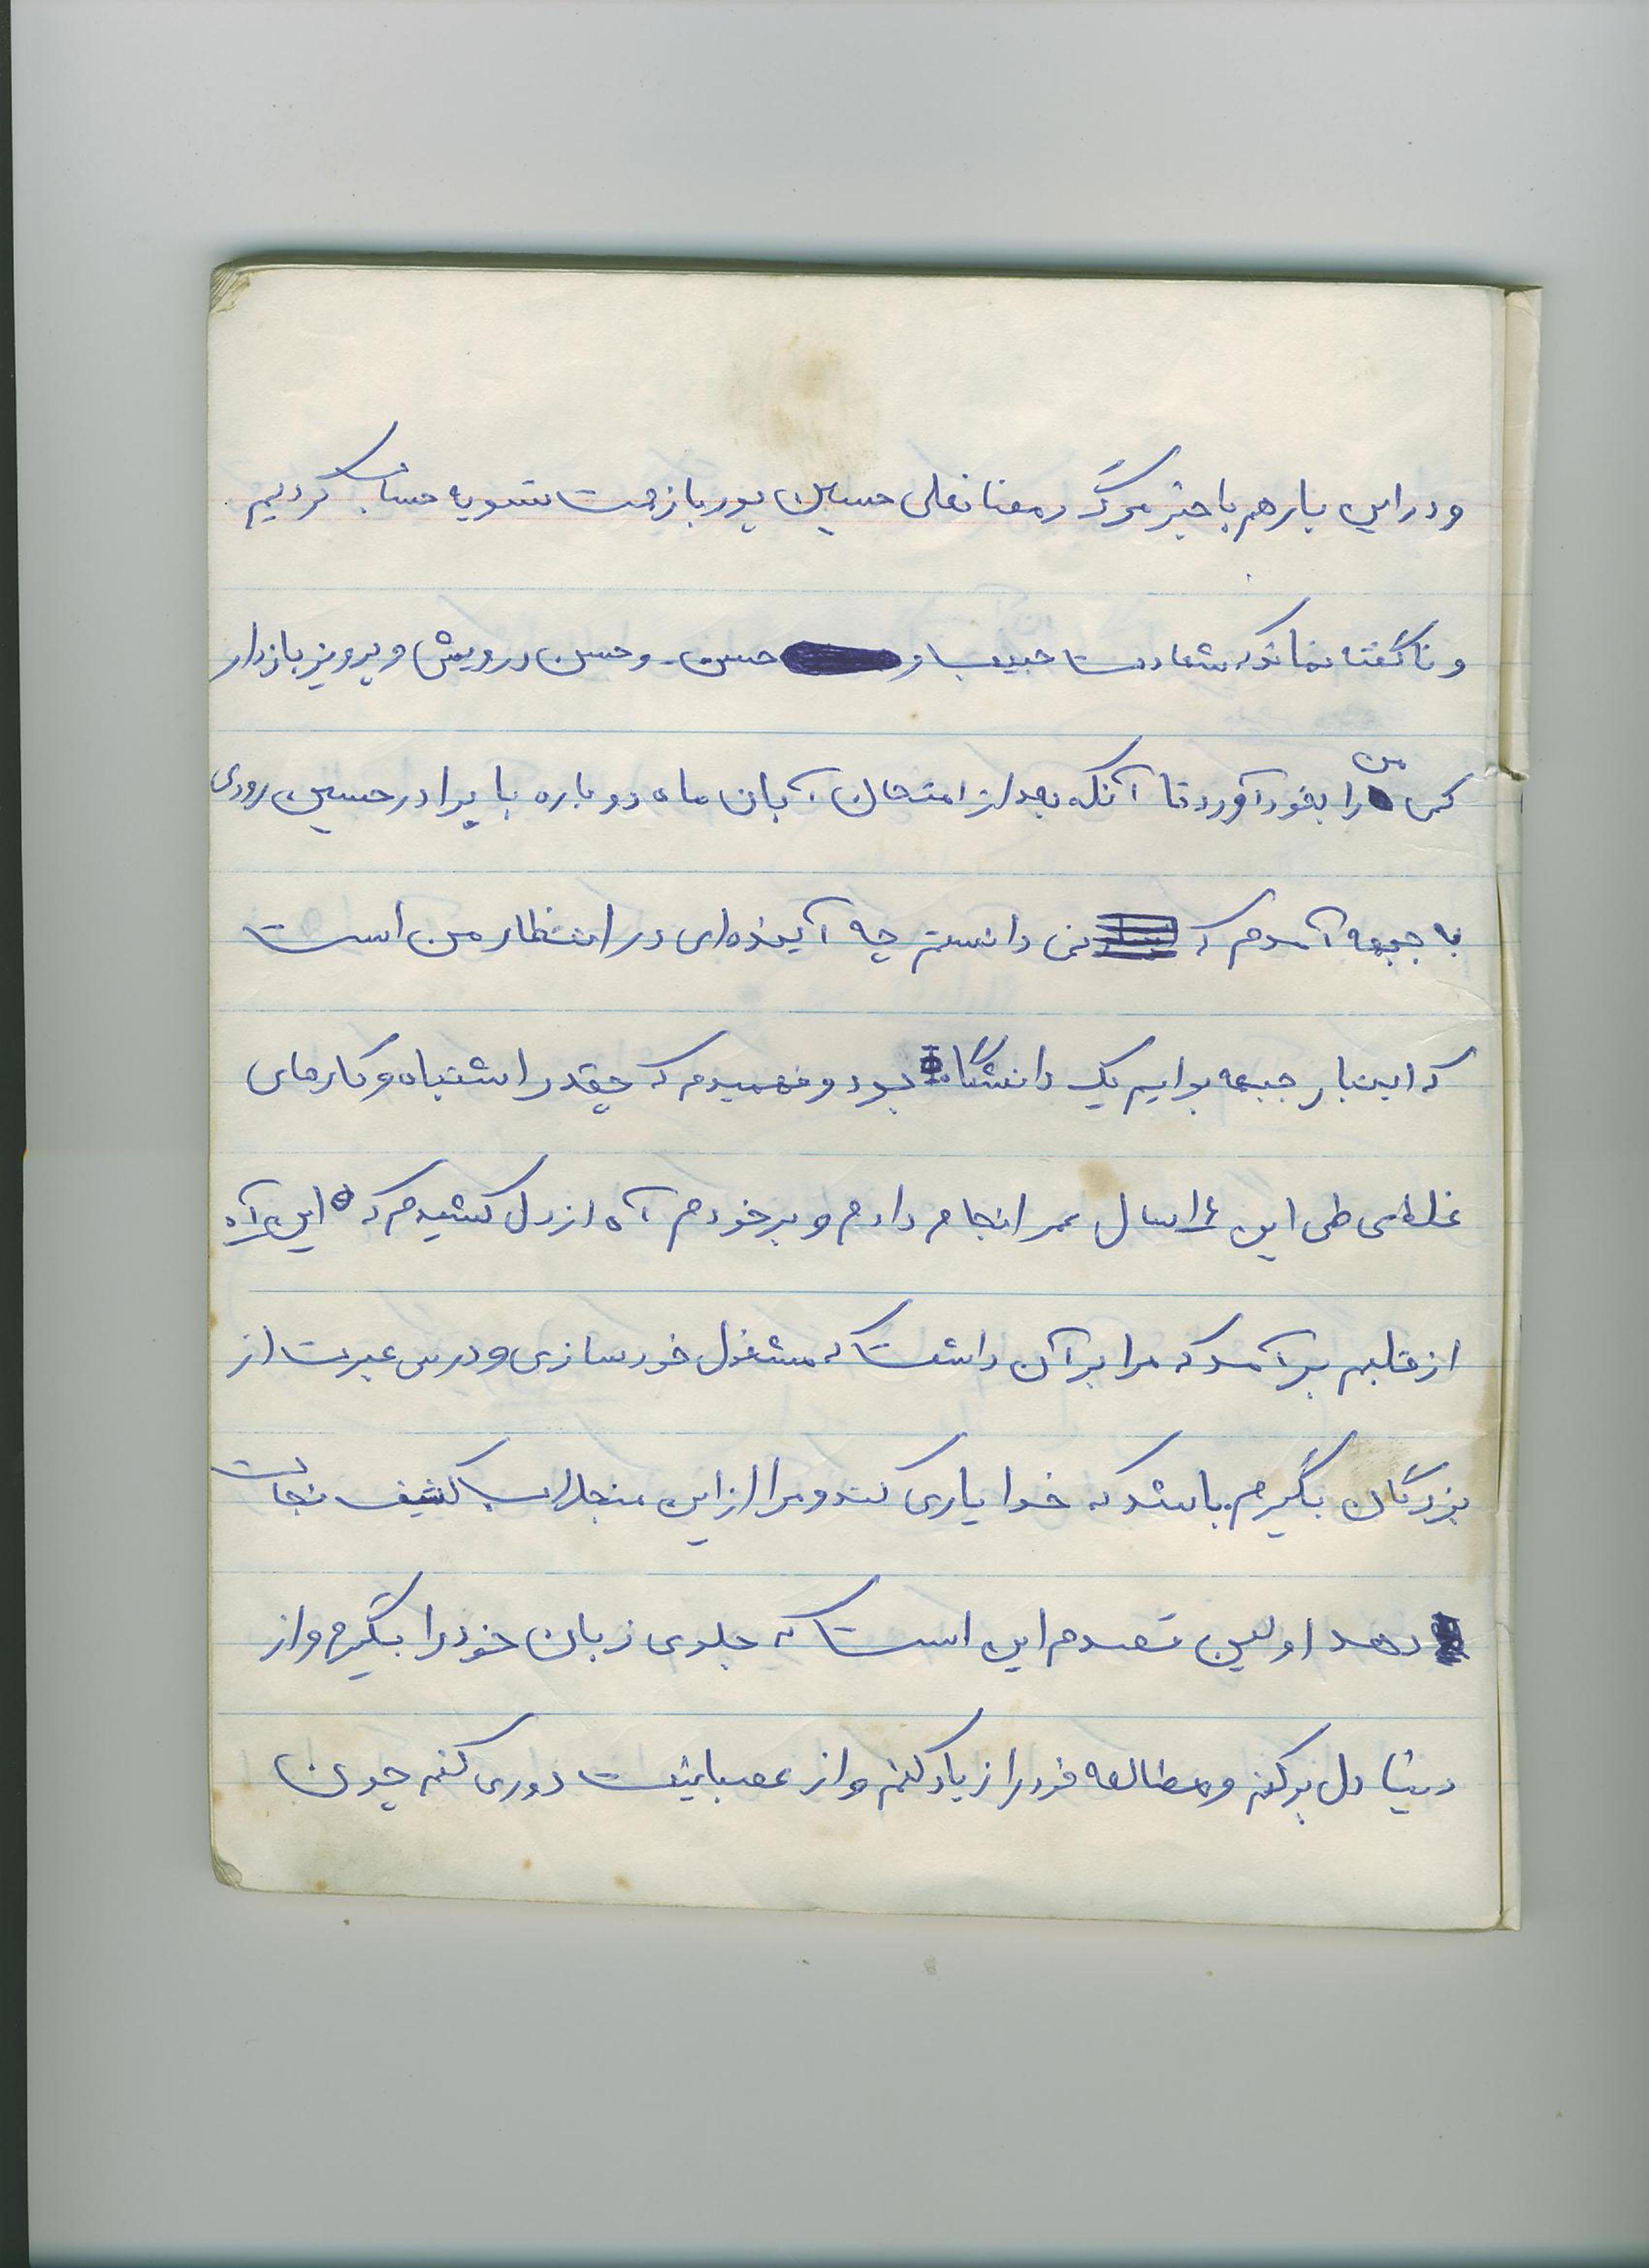 و در این بار هم با خبر مرگ رمضانعلی حسین پور باز هست تسویه حساب کردیم.
و ناگفته نماند که شهادت حبیب و حسن - و حسن درویش و پرویز بازدار
کمی من را بخود آورد تا آنکه بعد از امتحان آبان ماه دوباره با برادر حسین رودی
به جبهه آمدم که نمی دانستم چه آینده‌ای در انتظار من است
که اینبار جبهه برایم یک دانشگاه بود و فهمیدم که چقدر اشتباه و کارهای
غلطی طی این ۱۶ سال عمر انجام دادم و بر خودم آه از دل کشیدم که این آه
از قلبم برآمد که مرا بر آن داشت که مشغول خودسازی و درس عبرت از
بزرگان بگیرم. باشد که خدا یاری کند و مرا از این منجلاب کثیف نجات
دهد اولین قصدم این است که جلوی زبان خود را بگیرم و از
دنیا دل بر کنم و مطالعه خود را زیاد کنم و از عصبانیت دوری کنم چون